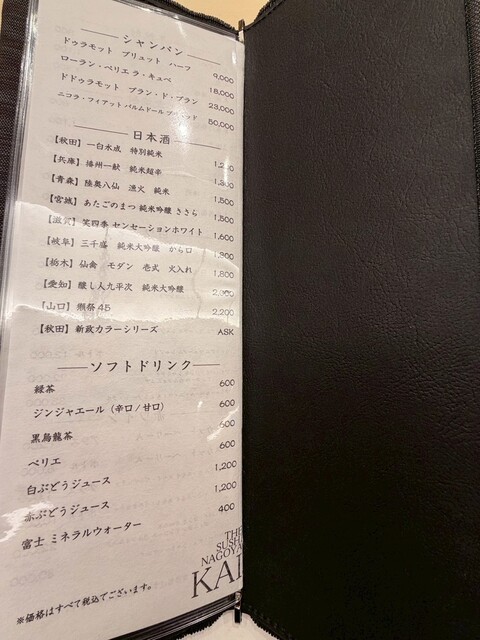 シャンパン
ドゥラモット ブリュット ハーフ 9,000
ローラン・ペリエ ラ・キュベ 18,000
ドドゥラモット ブラン・ド・ブラン 23,000
ニコラ・フィアット パルムドール 50,000
日本酒
【秋田】一白水成 特別純米
【兵庫】播州一献 純米超辛
【青森】陸奥八仙 漁火 純米 1,500
【宮城】あたごのまつ 純米吟醸 ささら 1,500
【滋賀】笑四季 センセーションホワイト 1,600
【岐阜】三千盛 純米大吟醸 から口
【栃木】仙禽 モダン 壱式 火入れ 1,800
【愛知】醸し人九平次 純米大吟醸 2,000
【山口】獺祭 45 2,200
【秋田】新政カラーシリーズ ASK
ソフトドリンク
緑茶 600
ジンジャエール（辛口/甘口） 600
黒烏龍茶 600
ペリエ 600
白ぶどうジュース 1,200
赤ぶどうジュース 1,200
富士 ミネラルウォーター 400
THE
SUSHI
NAGOYA
KAI
※価格はすべて税込でございます。